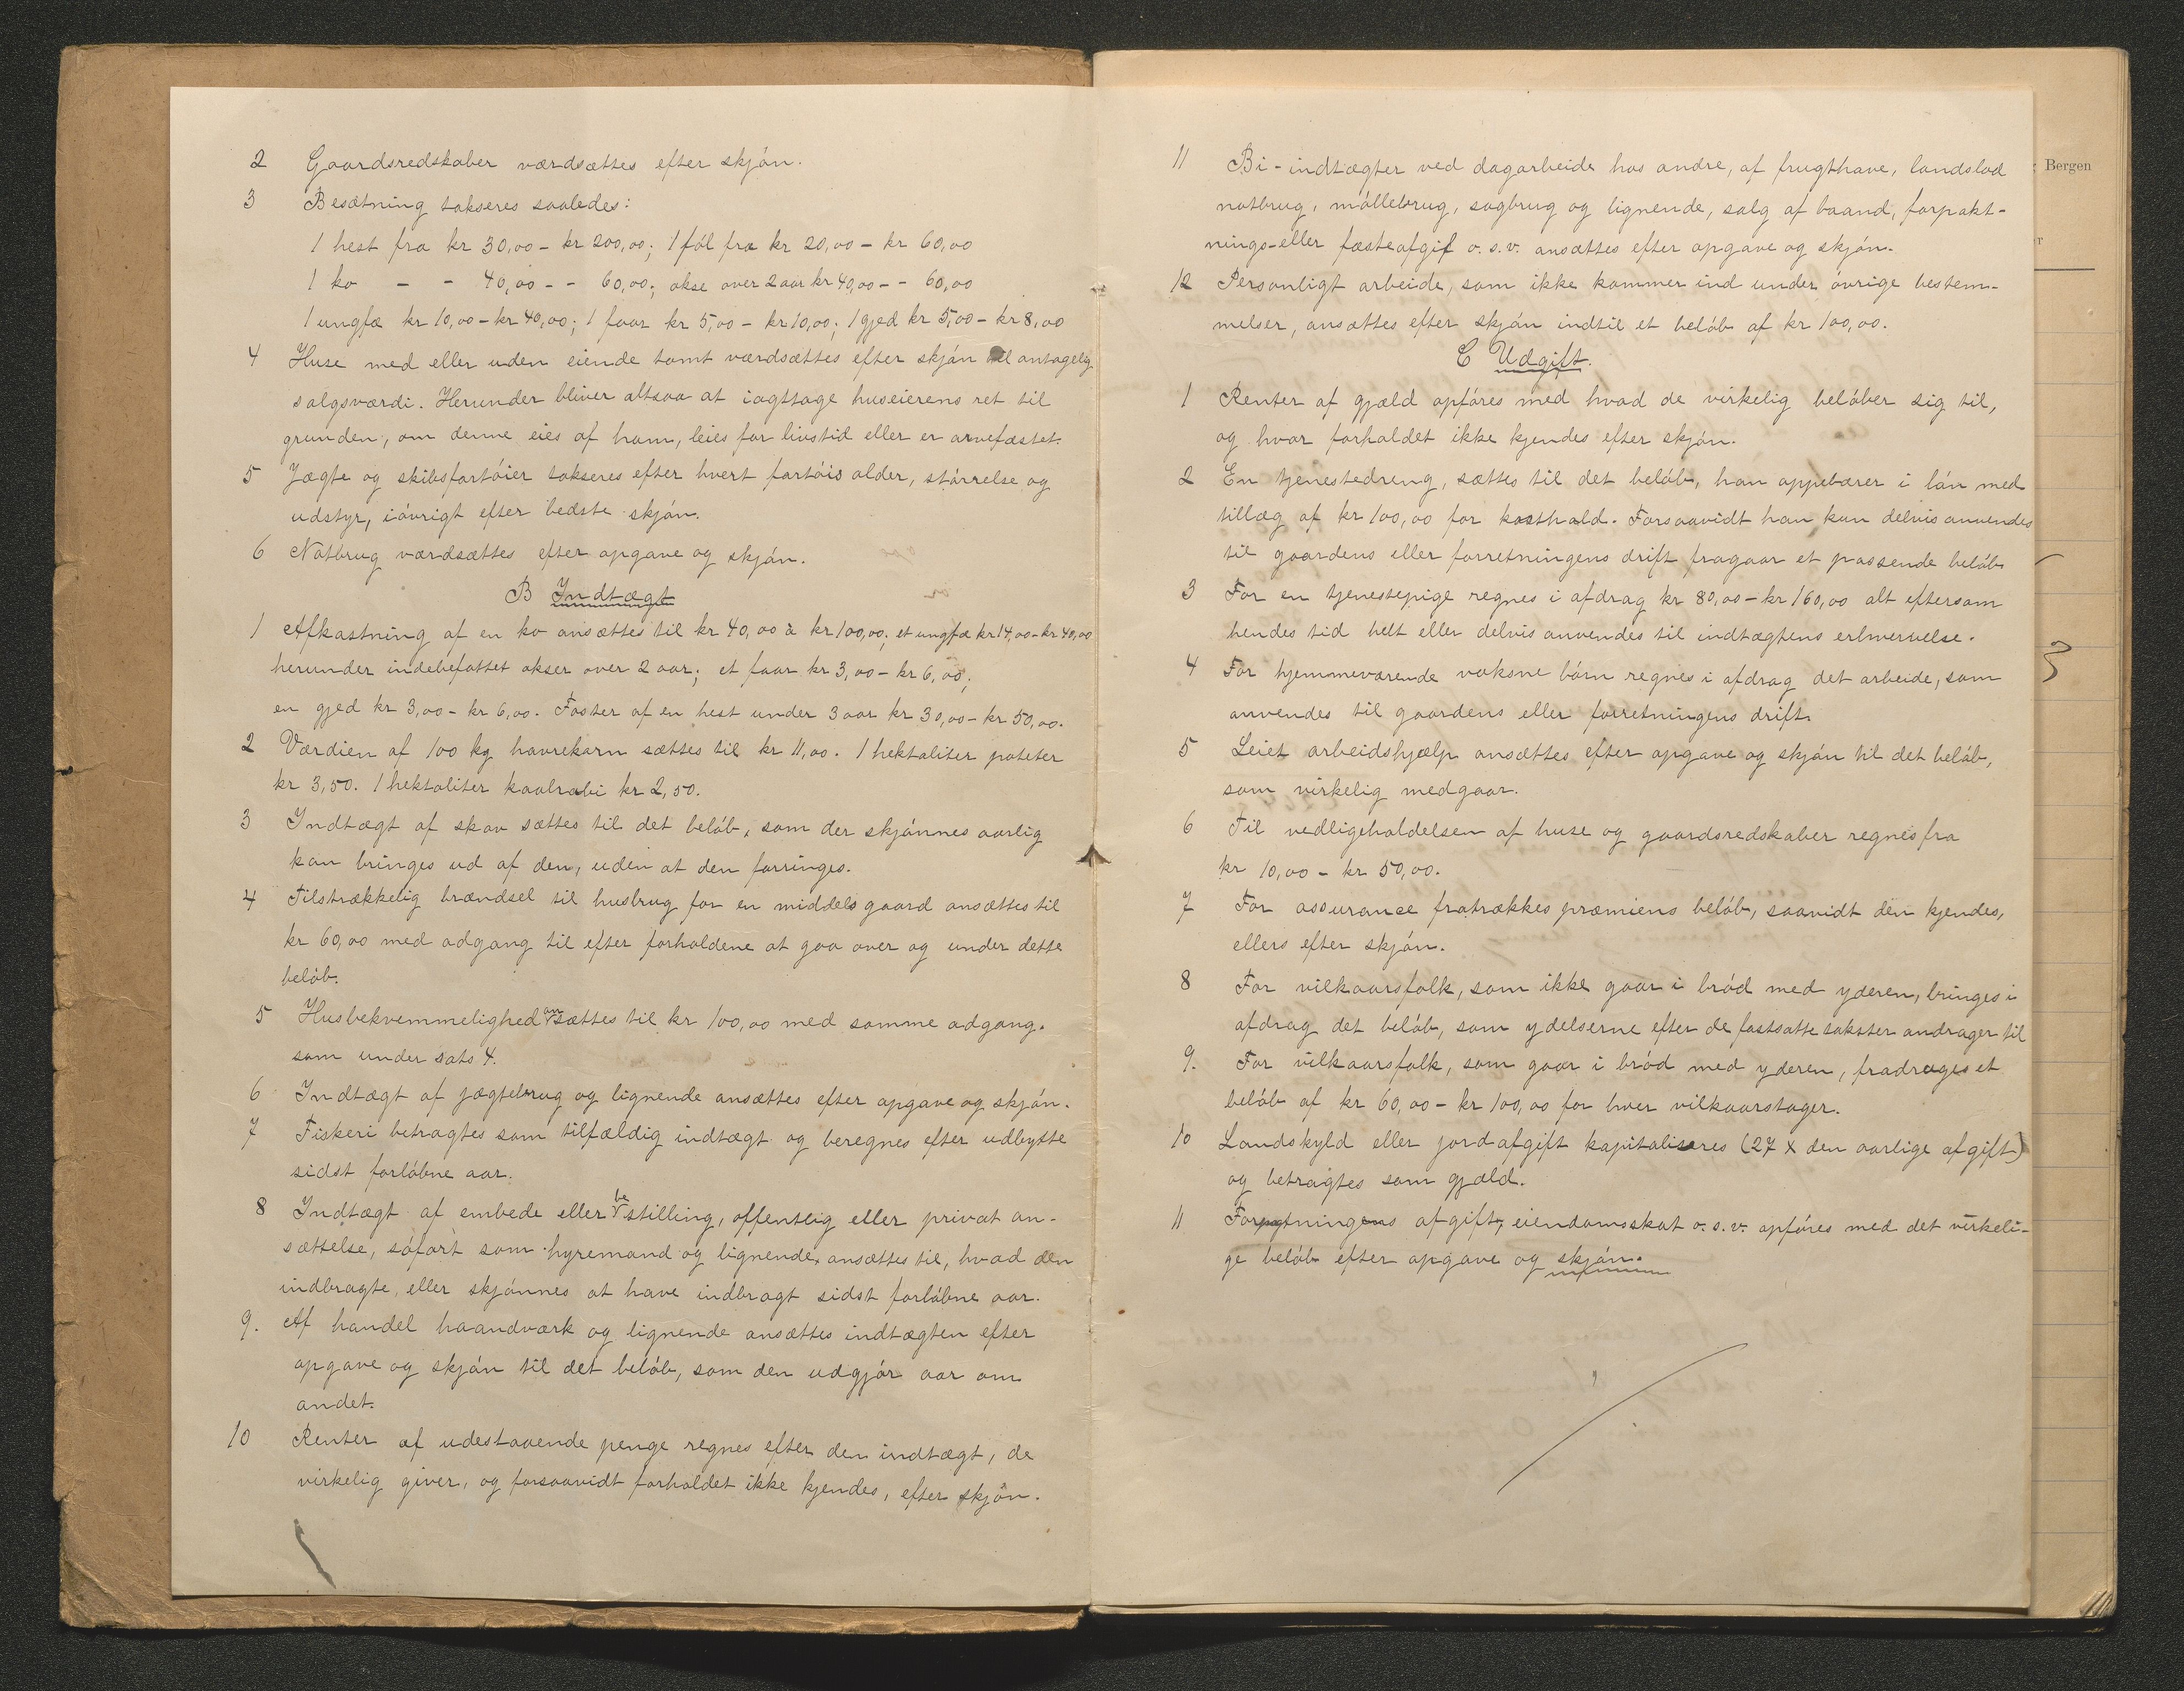 2 Gaardsredskaber værdsættes efter skjön.
3 Besætning takseres saaledes:
1 hest fra kr 30,00 - kr 200,00; 1 föl fra kr 20,00 - kr 60,00
1 ko - - 40,00 - - 60,00; okse over 2 aar kr 40,00 - - 60,00
1 ungfæ kr 10,00 - kr 40,00; 1 faar kr 5,00 - kr 10,00; 1 gjed kr 5,00 - kr 8,00
4 Huse med eller uden eiende tomt værdsættes efter skjön til antagelig
salgsværdi. Herunder bliver altsaa at iagttage huseierens ret til
grunden, om denne eies af ham, leies for livstid eller er arvefæstet.
5 Jægte og skibsfartöier takseres efter hvert fartöis alder, störrelse og
udstyr, iövrigt efter bedste skjön.
6 Notbrug værdsættes efter opgave og skjön.
B Indtægt
1 Afkastning af en ko ansættes til kr 40,00 à kr 100,00; et ungfæ kr 14,00 - kr 40,00
herunder indebefattet okser over 2 aar; et faar kr 3,00 - kr 6,00;
en gjed kr 3,00 - kr 6,00. Foster af en hest under 3 aar kr 30,00 - kr 50,00.
2 Værdien af 100 kg havrekorn sættes til kr 11,00. 1 hektoliter poteter
kr 3,50. 1 hektoliter kaalrabi kr 2,50.
3 Indtægt af skov sættes til det belöb, som der skjönnes aarlig
kan bringes ud af den, uden at den forringes.
4 Tilstrækkelig brændsel til husbrug for en middels gaard ansættes til
kr 60,00 med adgang til efter forholdene at gaa over og under dette
belöb.
5 Husbekvemmelighed ansættes til kr 100,00 med samme adgang.
som under sats 4.
6 Indtægt af jægtebrug og lignende ansættes efter opgave og skjön.
7 Fiskeri betragtes som tilfældig indtægt og beregnes efter udbytte
sidst forlöbne aar.
8 Indtægt af embede eller bestilling, offentlig eller privat an-
sættelse, söfart som hyremand og lignende, ansættes til, hvad den
indbragte, eller skjönnes at have indbragt sidst forlöbne aar.
9. Af handel haandværk og lignende ansættes indtægten efter
opgave og skjön til det belöb, som den udgjör aar om
andet.
10 Renter af udestaaende penge regnes efter den indtægt, de
virkelig giver, og forsaavidt forholdet ikke kjendes, efter skjön.
11 Bi-indtægter ved dagarbeide hos andre, af frugthave, landslod
notbrug, möllebrug, sagbrug og lignende, salg af baand, forpakt-
nings-eller fæsteafgif o.s.v. ansættes efter opgave og skjön.
12 Personligt arbeide, som ikke kommer ind under övrige bestem-
melser, ansættes efter skjön indtil et belöb af kr 100,00.
C Udgift.
1 Renter af gjæld opföres med hvad de virkelig belöber sig til,
og hvor forholdet ikke kjendes efter skjön.
2 En tjenestedreng, sættes til det belöb, han oppebærer i lön med
tillæg af kr 100,00 for kosthold. Forsaavidt han kun delvis anvendes
til gaardens eller forretningens drift fragaar et passende belöb
3 For en tjenestepige regnes i afdrag kr 80,00 - kr 160,00 alt eftersom
hendes tid helt eller delvis anvendes til indtægtens erhvervelse.
4 For hjemmeværende voksne börn regnes i afdrag det arbeide, som
anvendes til gaardens eller forretningens drift.
5 Leiet arbeidshjælp ansættes efter opgave og skjön til det belöb,
som virkelig medgaar.
6 Til vedligeholdelsen af huse og gaardsredskaber regnes fra
kr 10,00 - kr 50,00.
7 For assurance fratrækkes præmiens belöb, saavidt den kjendes,
ellers efter skjön.
8 For vilkaarsfolk, som ikke gaar i bröd med yderen, bringes i
afdrag det belöb, som ydelserne efter de fastsatte takster andrager til
9. For vilkaarsfolk, som gaar i bröd med yderen, fradrages et
belöb af kr 60,00 - kr 100,00 for hver vilkaarstager.
10 Landskyld eller jordafgift kapitaliseres (27 x den aarlige afgift)
og betragtes som gjæld.
11 afgift, eiendomsskat o.s.v. opföres med det virkeli-
ge belöb efter opgave og skjön.
Bergen
3